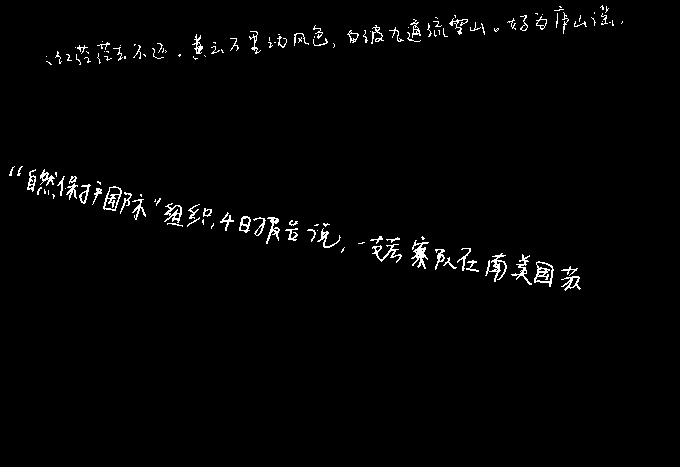 江茫茫去不还。黄云万里动风色，白波九道流雪山。好为庐山谣，
“自然保护国际”组织，4日报告说，一支考察队在南美国苏